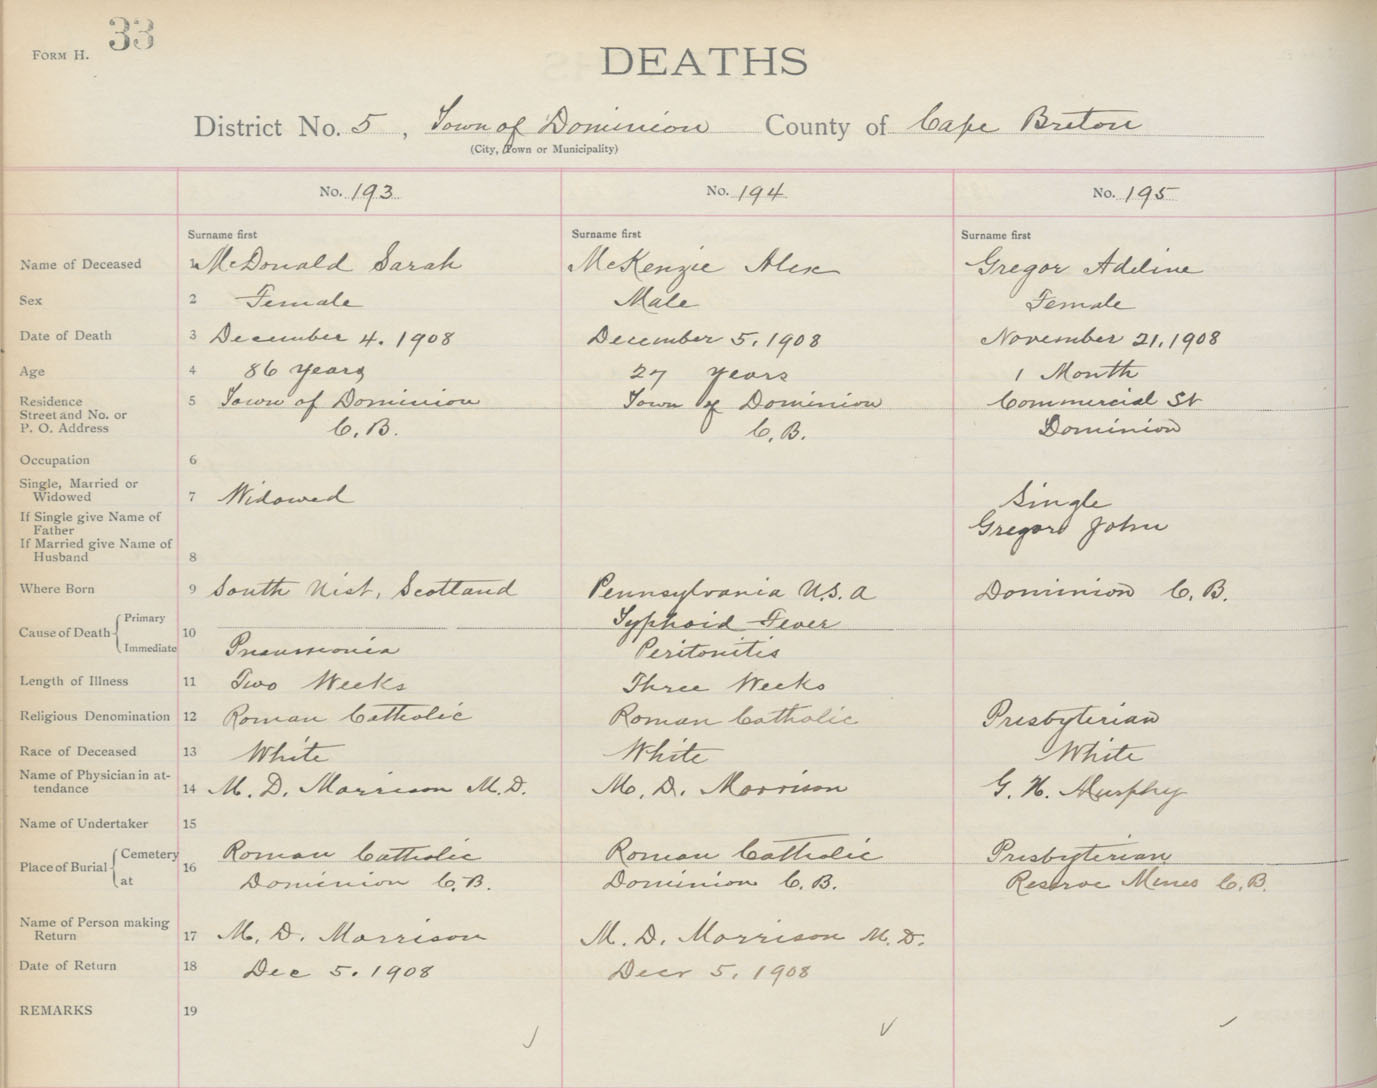 33
FORM H.
DEATHS
District No. 5, Town of Dominion County of Cape Breton
(City, Town or Municipality)
No. 193 No. 194 No. 195
Surname first Surname first Surname first
Name of Deceased 1 McDonald Sarah McKenzie Alex Gregor Adeline
Sex 2 Female Male Female
Date of Death 3 December 4. 1908 December 5, 1908 November 21, 1908
Age 4 86 years 27 years 1 Month
Residence 5 Town of Dominion Town of Dominion Commercial St
Street and No. or
P. O. Address C. B. C. B. Dominion
Occupation 6
Single, Married or
Widowed 7 Widowed Single
If Single give Name of
Father Gregor John
If Married give Name of
Husband 8
Where Born 9 South Uist, Scotland Pennsylvania U.S.A Dominion C. B.
Cause of Death Primary 10 Typhoid Fever
Immediate Pneumonia Peritonitis
Length of Illness 11 Two Weeks Three Weeks
Religious Denomination 12 Roman Catholic Roman Catholic Presbyterian
Race of Deceased 13 White White White
Name of Physician in at-
tendance 14 M. D. Morrison M.D. M. D. Morrison G. H. Murphy
Name of Undertaker 15
Place of Burial Cemetery 16 Roman Catholic Roman Catholic Presbyterian
at Dominion C. B. Dominion C. B. Reserve Mines C. B.
Name of Person making
Return 17 M. D. Morrison M. D. Morrison M. D.
Date of Return 18 Dec 5. 1908 Decr 5, 1908
REMARKS 19